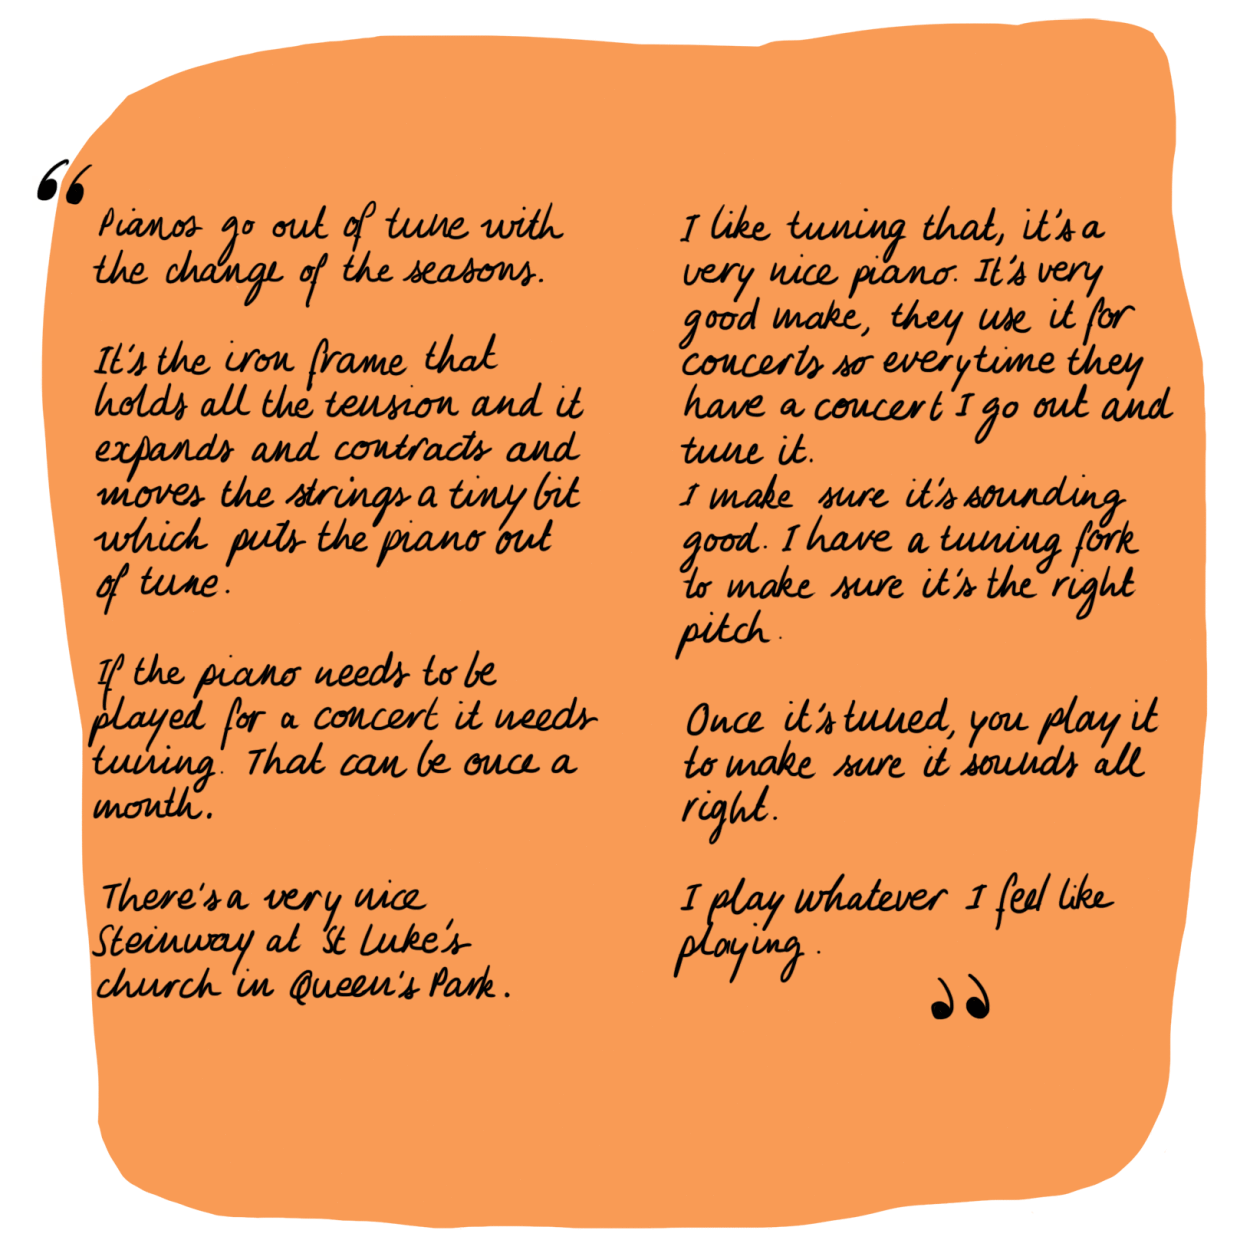 “
Pianos go out of tune with
the change of the seasons.
It's the iron frame that
holds all the tension and it
expands and contracts and
moves the strings a tiny bit
which puts the piano out
of tune.
If the piano needs to be
played for a concert it needs
tuning. That can be once a
month.
There's a very nice
Steinway at St Luke's
church in Queen's Park.
I like tuning that, it's a
very nice piano. It's very
good make, they use it for
concerts so everytime they
have a concert I go out and
tune it.
I make sure it's sounding
good. I have a tuning fork
to make sure it's the right
pitch.
Once it's tuned, you play it
to make sure it sounds all
right.
I play whatever I feel like
playing.
”